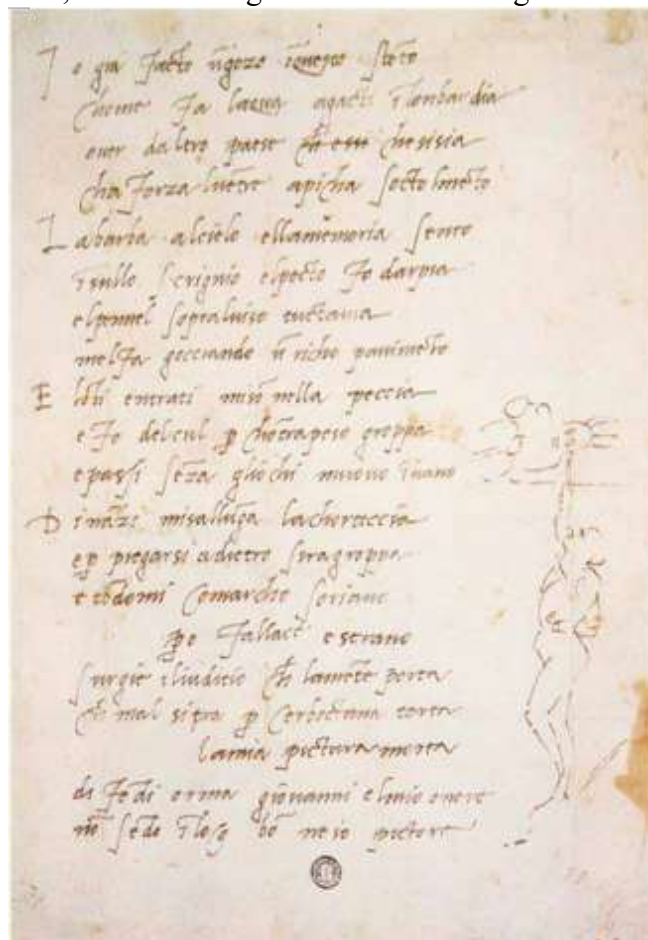 Io gia facto ūgozo īquesto stēto
chome fa lacqua agacti īlonbardia
over daltro paese ch essi chesisia
cha forza luētre apicha socto lmēto
La barba alcielo ellamemoria sento
īsullo scrignio elpecto fo darpia
elpennel sopraluiso tuctauia
melfa gocciando ū richo pauimēto
E lōbi entrati miso nella peccia
e fo delcul p chōtrapeso groppa
epassi sēza gliochi muouo īuano
Dināzi misallūga lachorteccia
ep piegarsi adietro siragroppa
e tēdomi comarcho soriano
po fallace e strano
surgie iliuditio ch lamēte porta
ch mal sitra p cerboctana torta
lamia pictura morta
difēdi orma giouanni elmio onore
nō sēdo īlogo bō neio pictore